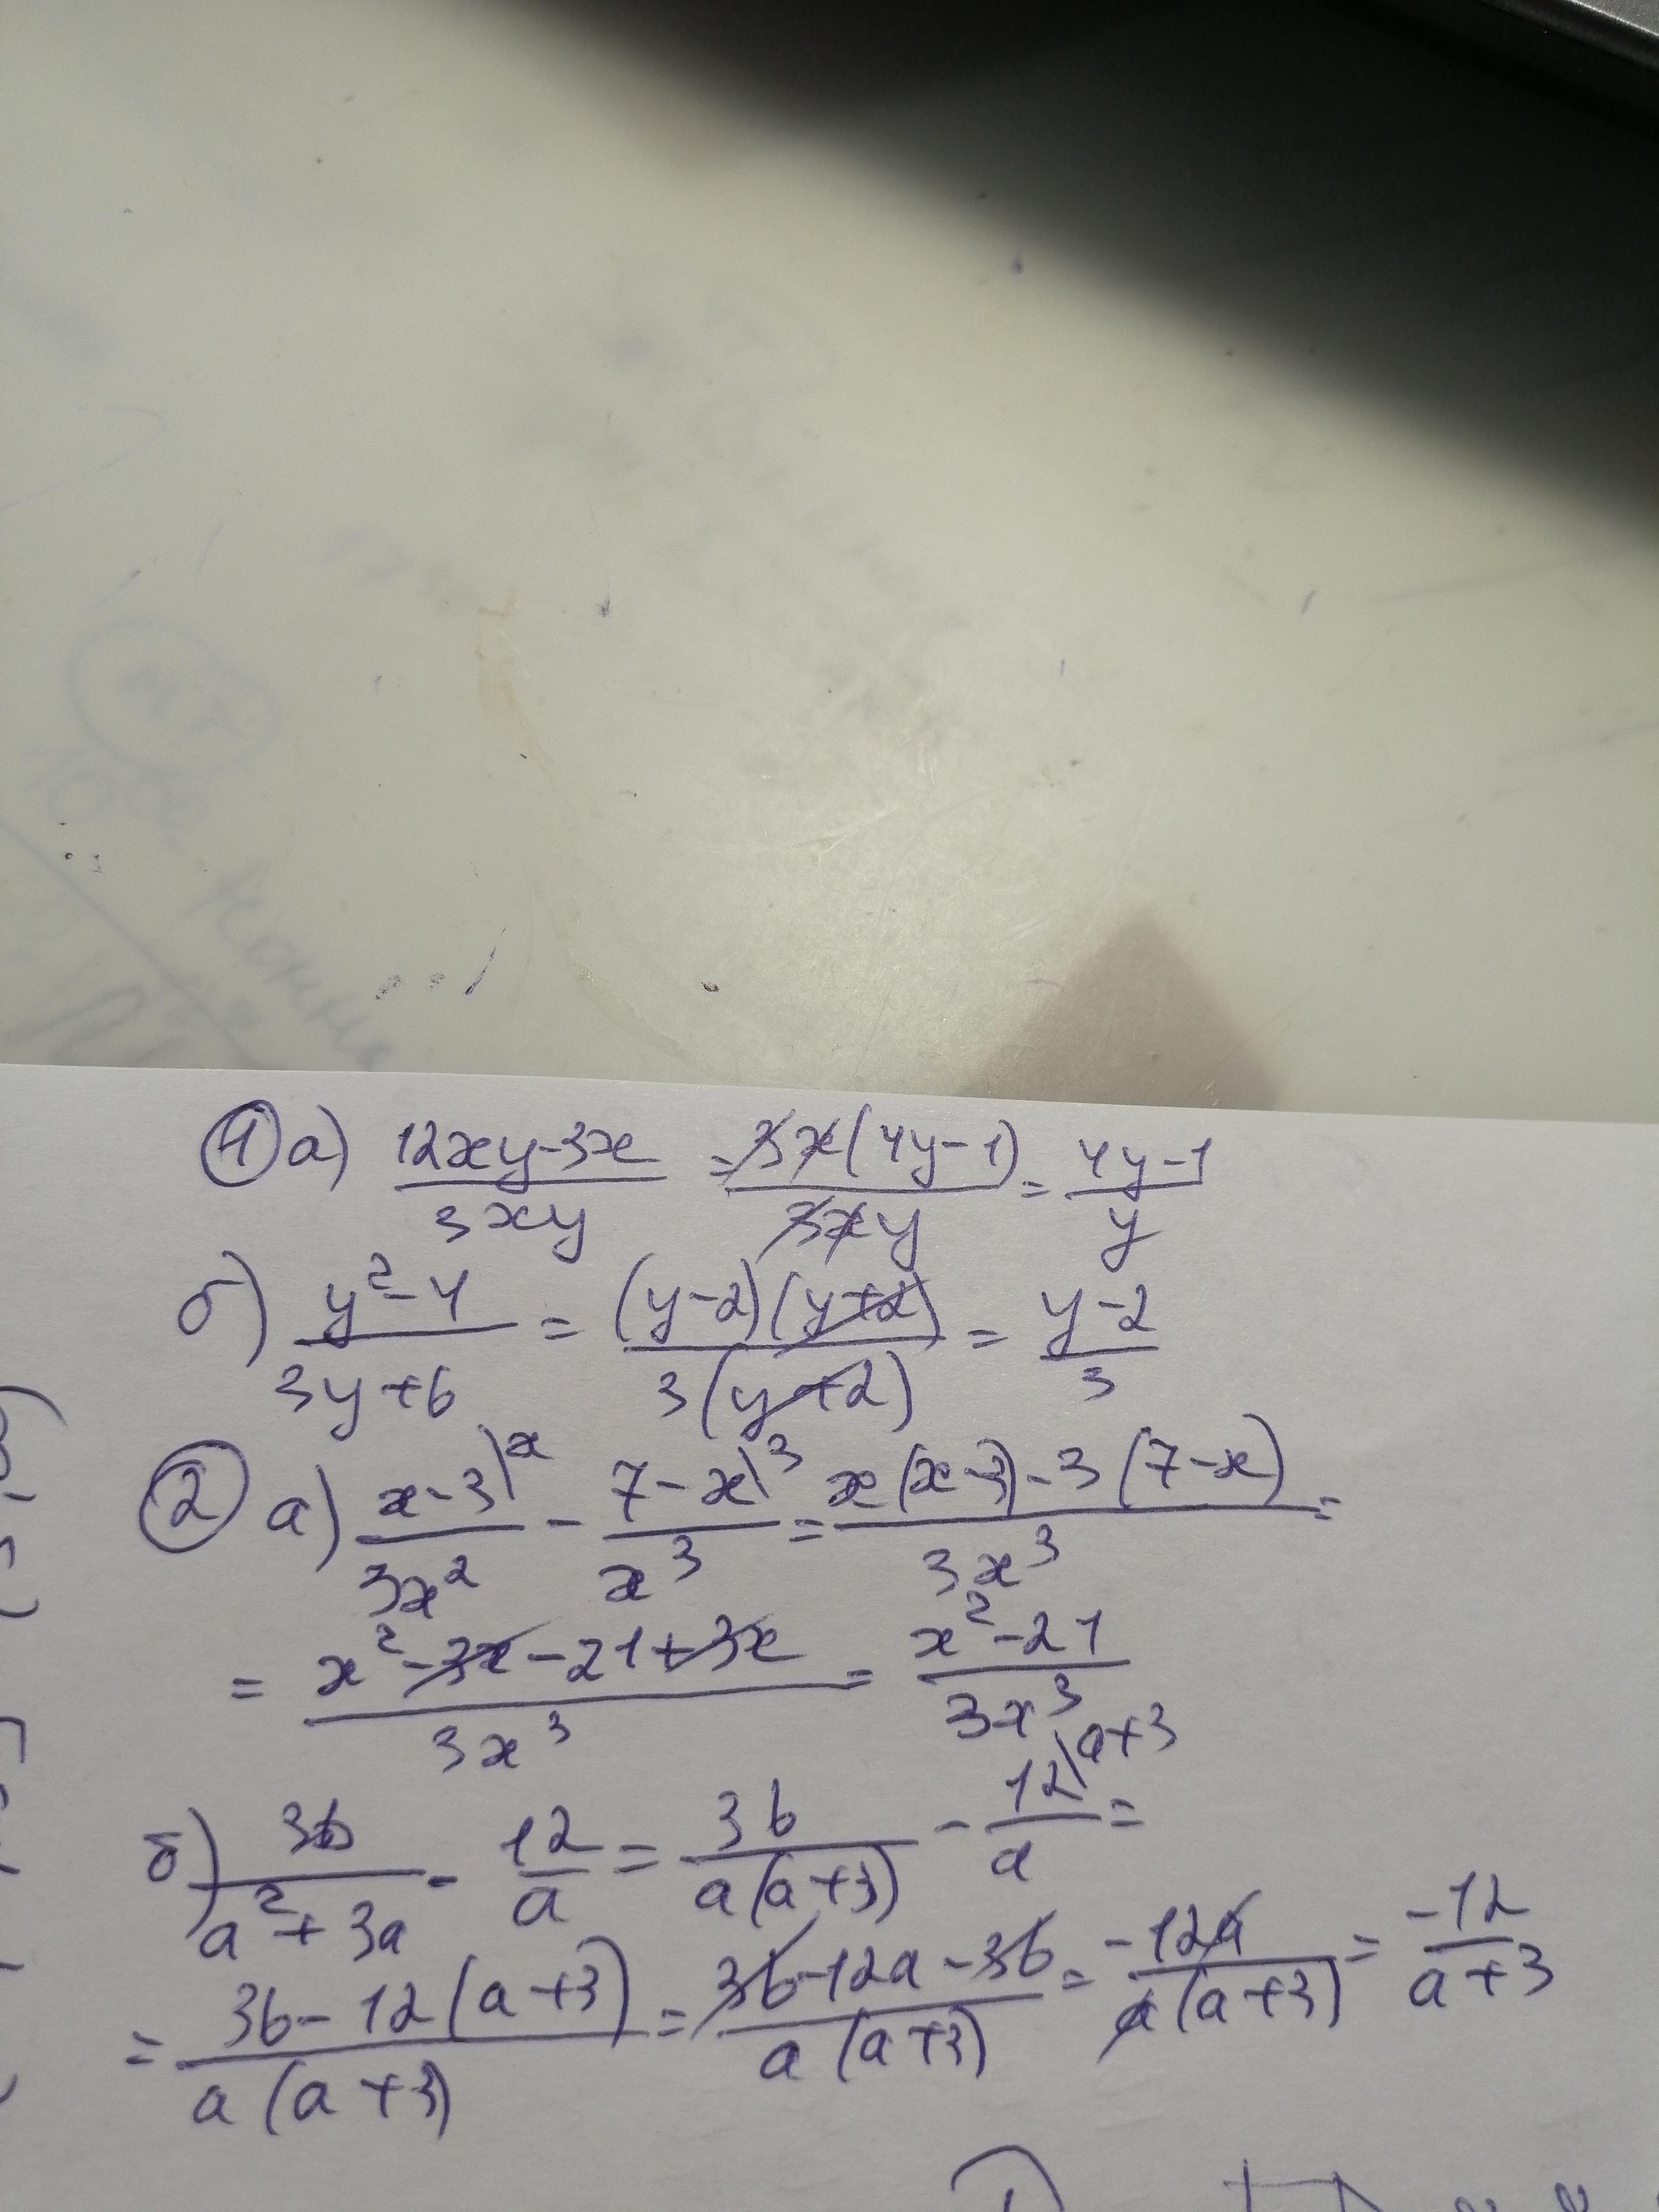 ① а) (12xy-3x)/(3xy) = (3x(4y-1))/(3xy) = (4y-1)/y
б) (y²-4)/(3y+6) = ((y-2)(y+2))/(3(y+2)) = (y-2)/3
② а) (x-3)/(3x²) \x - (7-x)/(x³) \3 = (x(x-3)-3(7-x))/(3x³) =
= (x²-3x-21+3x)/(3x³) = (x²-21)/(3x³)
б) 36/(a²+3a) - 12/a = 36/(a(a+3)) - 12/a \a+3 =
= (36-12(a+3))/(a(a+3)) = (36-12a-36)/(a(a+3)) = (-12a)/(a(a+3)) = (-12)/(a+3)